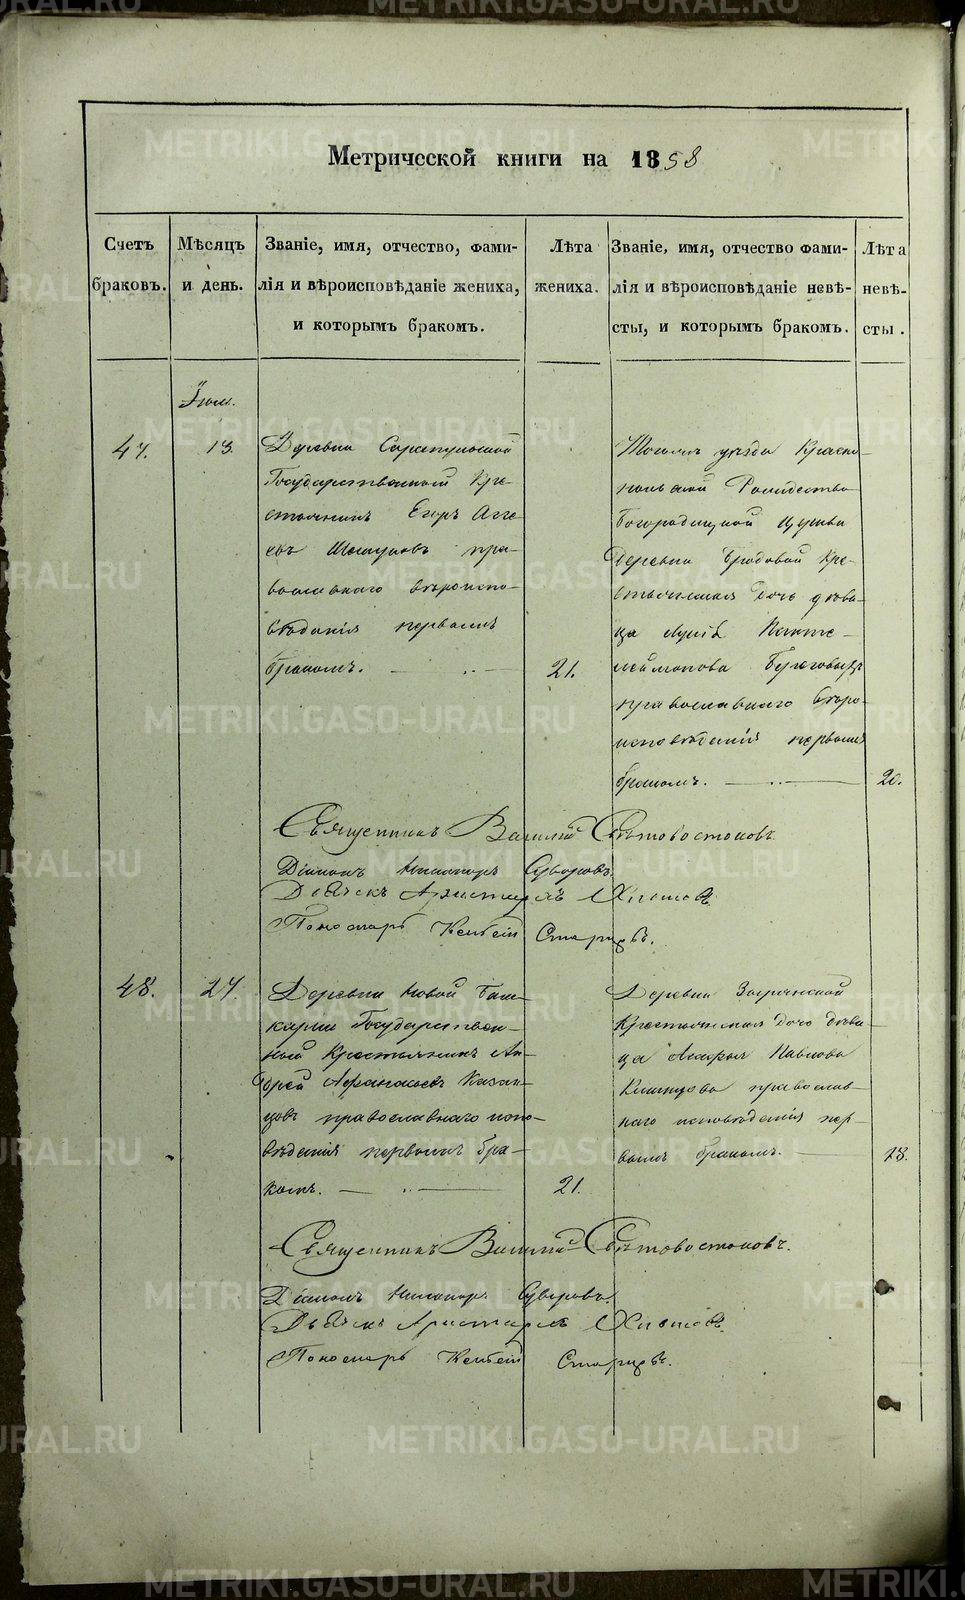 Метрической книги на 1858
Счетъ браковъ.
Мѣсяцъ и день.
Званіе, имя, отчество, фами-
лія и вѣроисповѣданіе жениха,
и которымъ бракомъ.
Лѣта
жениха.
Званіе, имя, отчество фами-
лія и вѣроисповѣданіе невѣ-
сты, и которымъ бракомъ.
Лѣта
невѣ-
сты.
47.
13.
Деревни Сарапульской
Государственный Кре-
стьянинъ Егоръ Агге-
евъ пра-
вославнаго вѣроиспо-
вѣданія первымъ
бракомъ.
21.
уѣзда Красно-
польской Рождество
Богородицкой церкви
Деревни Бродовой Кре-
стьянская дочь дѣви-
ца Панте-
леймонова
православнаго вѣро-
исповѣданія первымъ
бракомъ.
20.
Священникъ Василій Свѣтовостоковъ.
Діаконъ Никаноръ Суворовъ.
Дьячекъ Аристархъ
Пономарь
48.
27.
Деревни Новой Баш-
каріи Государствен-
ный Крестьянинъ Ан-
дрей Афанасьевъ Казан-
цовъ православнаго испо-
вѣданія первымъ бра-
комъ.
21.
Деревни
Крестьянская дочь дѣви-
ца Павлова
православ-
наго исповѣданія пер-
вымъ бракомъ.
18.
Священникъ Василій Свѣтовостоковъ.
Діаконъ Никаноръ Суворовъ.
Дьячекъ Аристархъ
Пономарь
METRIKI.GASO-URAL.RU